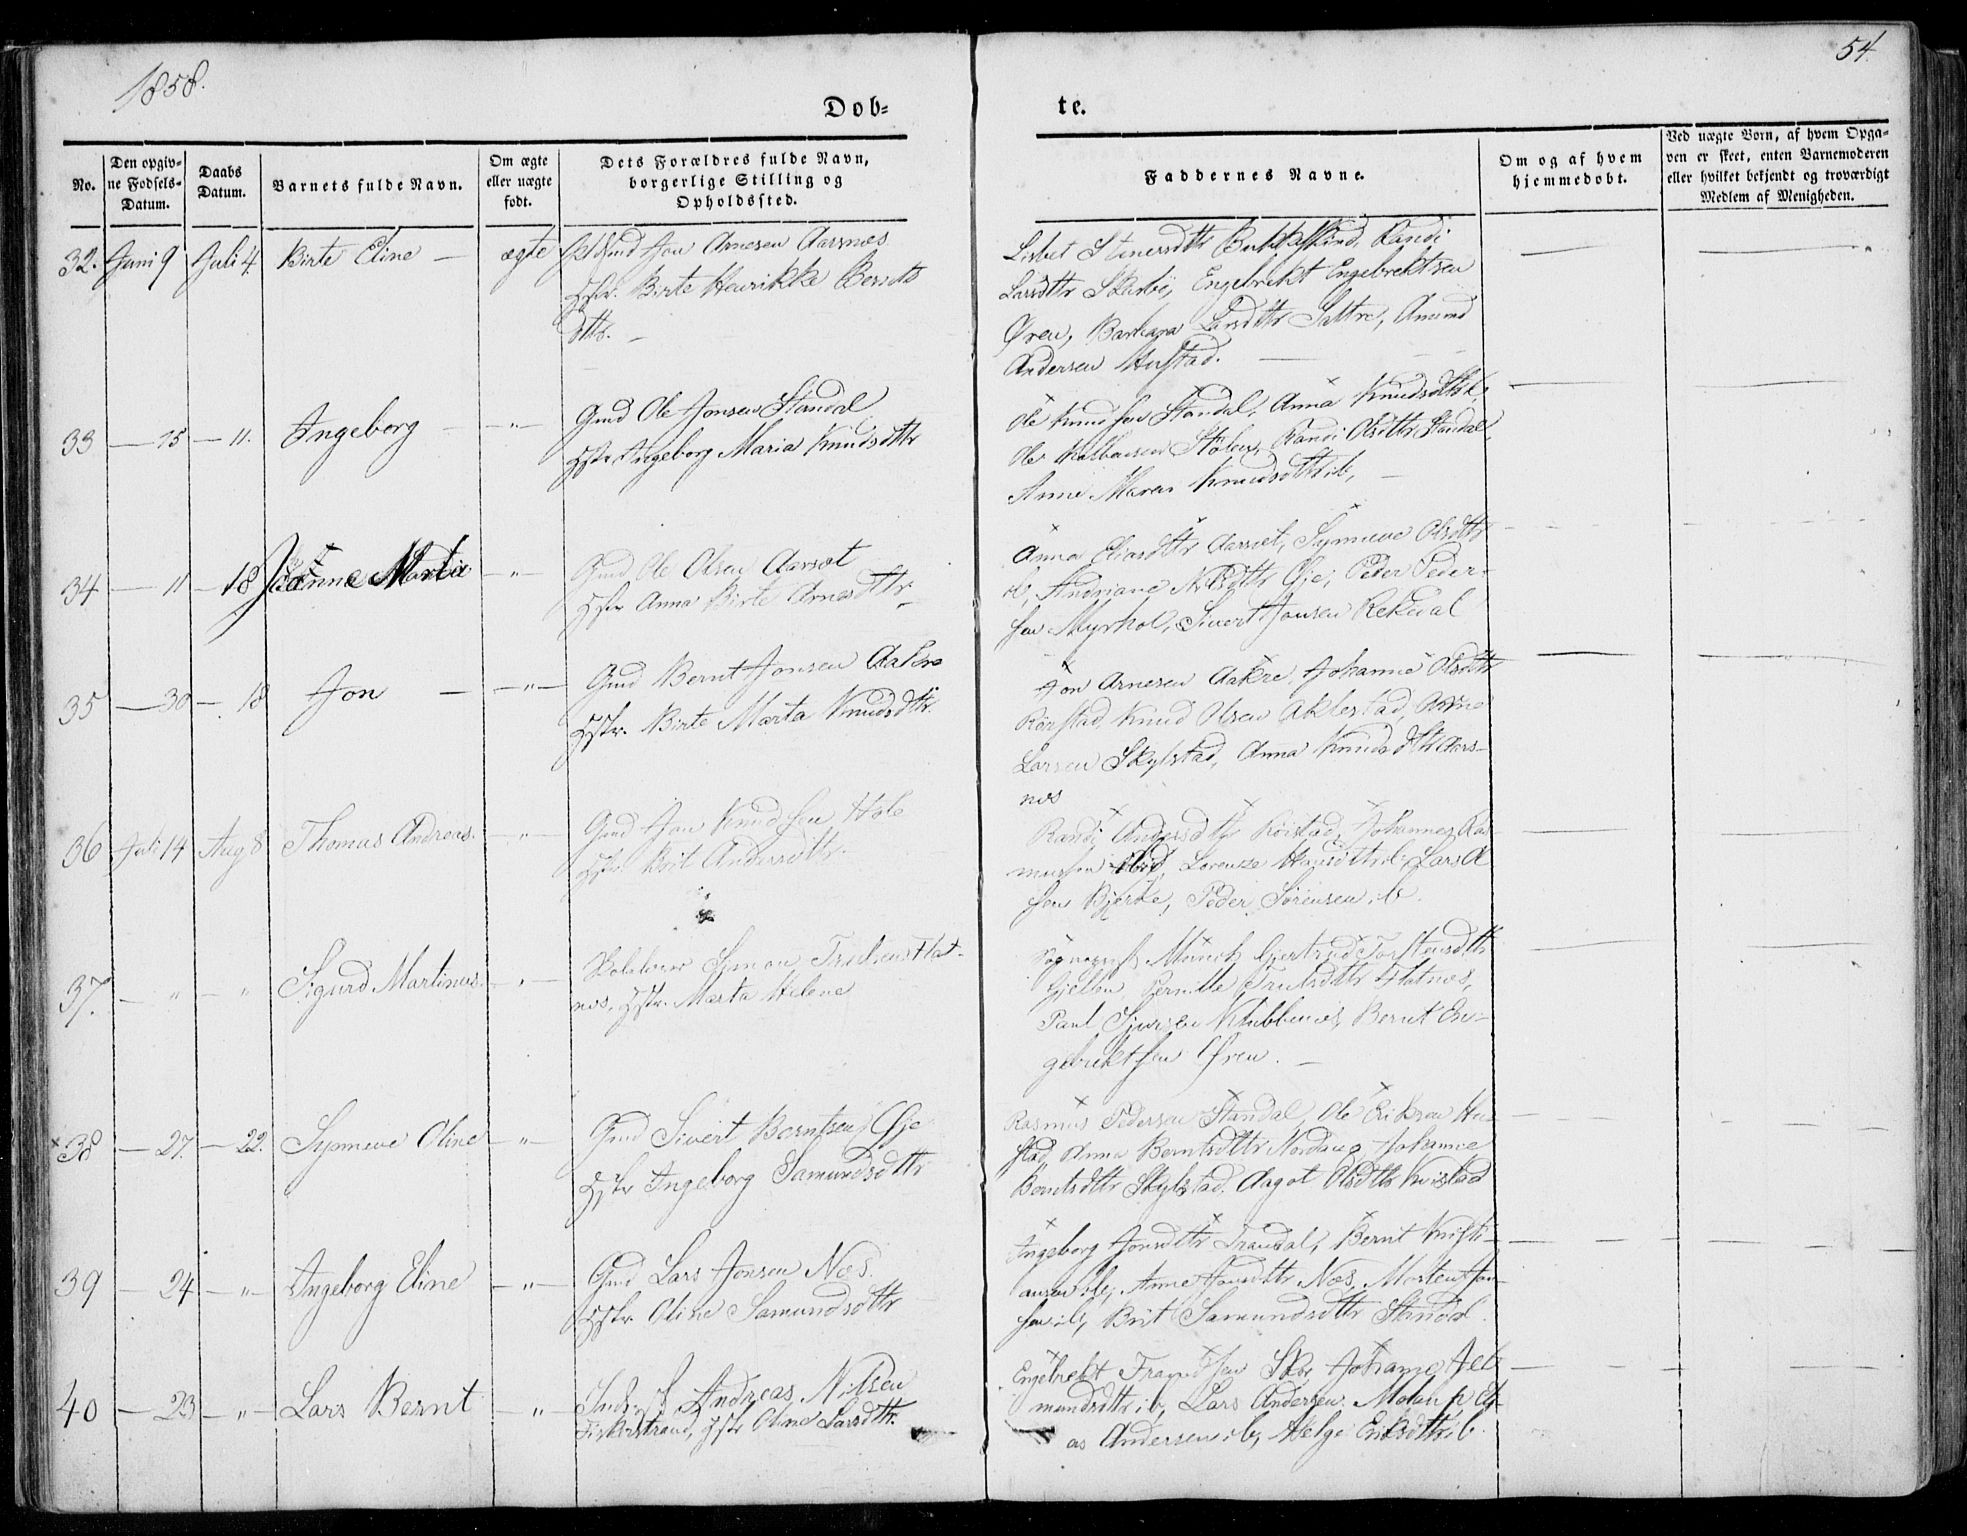 1858.
54.
Døb-
te.
No.
Den opgiv-
ne Fødsels-
Datum.
Daabs
Datum.
Barnets fulde Navn.
Om ægte
eller uægte
født.
Dets Forældres fulde Navn,
borgerlige Stilling og
Opholdssted.
Faddernes Navne.
Om og af hvem
hjemmedøbt.
Ved uægte Børn, af hvem Opga-
ven er skeet, enten Barnemoderen
eller hvilket bekjendt og troværdigt
Medlem af Menigheden.
32. Juni 9 Juli 4. Birte Eline — ægte Jon Arnesen Aarsnes
Hstr. Birte Henrikke Bernts
dttr. —
Lisbet Randi
Larsdttr Skarbø, Engebrekt Engebrektsen
Øren, Barbara Larsdttr Sætre, Amund
Andersen Hustad. —
33 — 15 — 11. Ingeborg — — " — Gmd Ole Jonsen Standal
Hstr Ingeborg Maria Knudsdttr
Ole Knudsen Standal, Anna Knudsdttr ib,
Ole Stølen, Randi Olsdttr Standal,
Anne Maren Knudsdttr ib, —
34 — 11 — 18 Martha — " — Gmd Ole Olsen Aarsæt
Hstr Anna Birte Arnesdttr —
Anna Eliasdttr Aarsæt, Synneve Olsdttr
ib, Andriane Nilsdttr Øje, Peder Peder-
sen Myrhol, Sivert Jonsen Rekkedal
35 — 30 — 18 Jon — — " — Gmd Bernt Jonsen Aakre
Hstr. Birte Marta Knudsdttr.
Jon Arnesen Aakre, Johanne Olsdttr
Rørstad, Knud Olsen Aklestad, Arne
Larsen Skylstad, Anna Knudsdttr Aars-
nes
36 Juli 14 Aug 8 Thomas Andreas. — " — Gmd Jon Knudsen Hole
Hstr. Brit Andersdttr.
Randi Andersdttr Rørstad, Johannes Ras-
mussen ibid, Lorenze Hansdttr ib, Lars
sen Bjerke, Peder Sørensen ib.
37. — " — " Sigurd Martinus. — " — Simon Flat-
nes, Hstr. Marta Helene
Munch Gjertrud Torstensdttr
Pernille Flatnes,
Paul Sjursen Klubbenes, Bernt En-
gebrektsen Øren. —
38 — 27. — 22. Synneve Oline — " — Gmd Sivert Berntsen Øje
Hstr Ingeborg Samundsdttr
Rasmus Pedersen Standal, Ole Eriksen Hu-
stad, Anna Berntsdttr Nordang, Johanne
Berntsdttr Skylstad, Aagot Olsdttr
39 — 24 — " — Ingeborg Eline — " — Gmd Lars Jonsen Nes.
Hstr. Oline Samundsdttr
Ingeborg Jonsdttr Trandal, Bernt Kristi-
ansen ib, Anne Jonsdttr Nes, Morten Jon-
sen ib, Brit Samundsdttr Standal.
40 — 23 — " — Lars Bernt — " Andreas Nilsen
Fiskerstrand, Hstr Oline Larsdttr.
Engebrekt Frandsen Johanne Jet-
mundsdttr ib, Lars Andersen El-
as Andersen ib, Helge Eriksdttr ib.